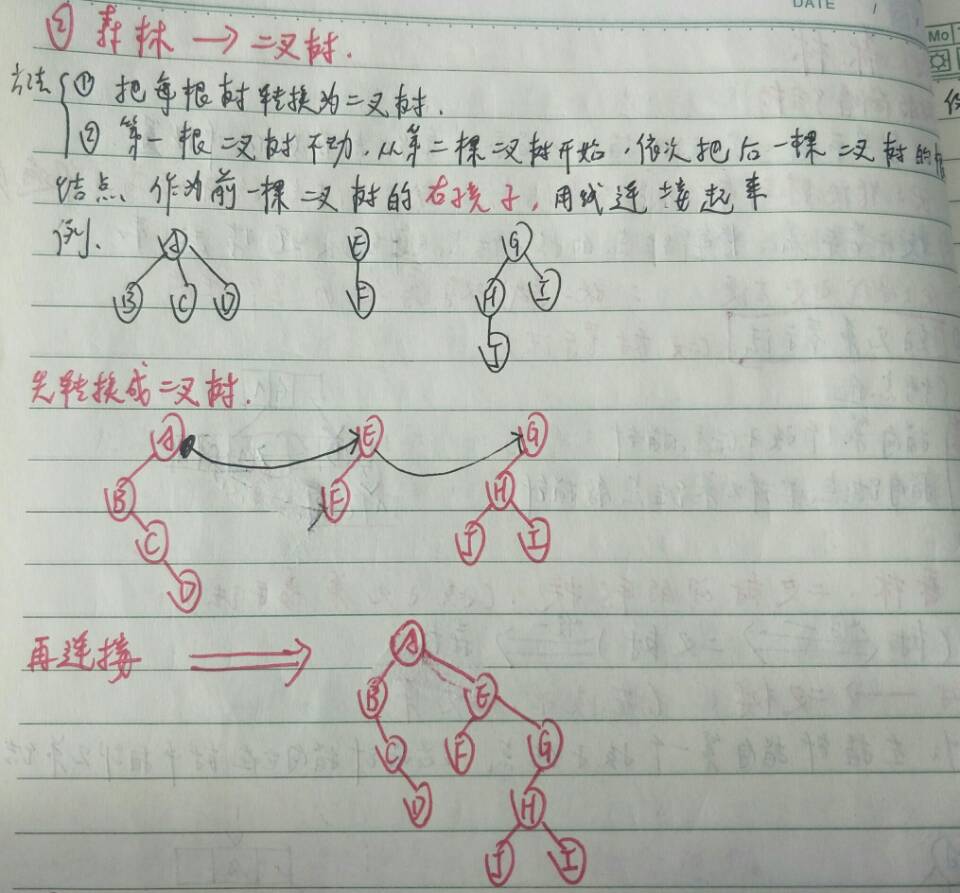 DATE /
Mo
② 森林 → 二叉树.
方法 ① 把每棵树转换为二叉树.
② 第一棵二叉树不动,从第二棵二叉树开始,依次把后一棵二叉树的根
结点 作为前一棵二叉树的右孩子,用线连接起来
例.
A E G
B C D F H I
J
先转换成二叉树.
A E G
B F H
C J I
D
再连接
A
B E
C F G
D H
J I